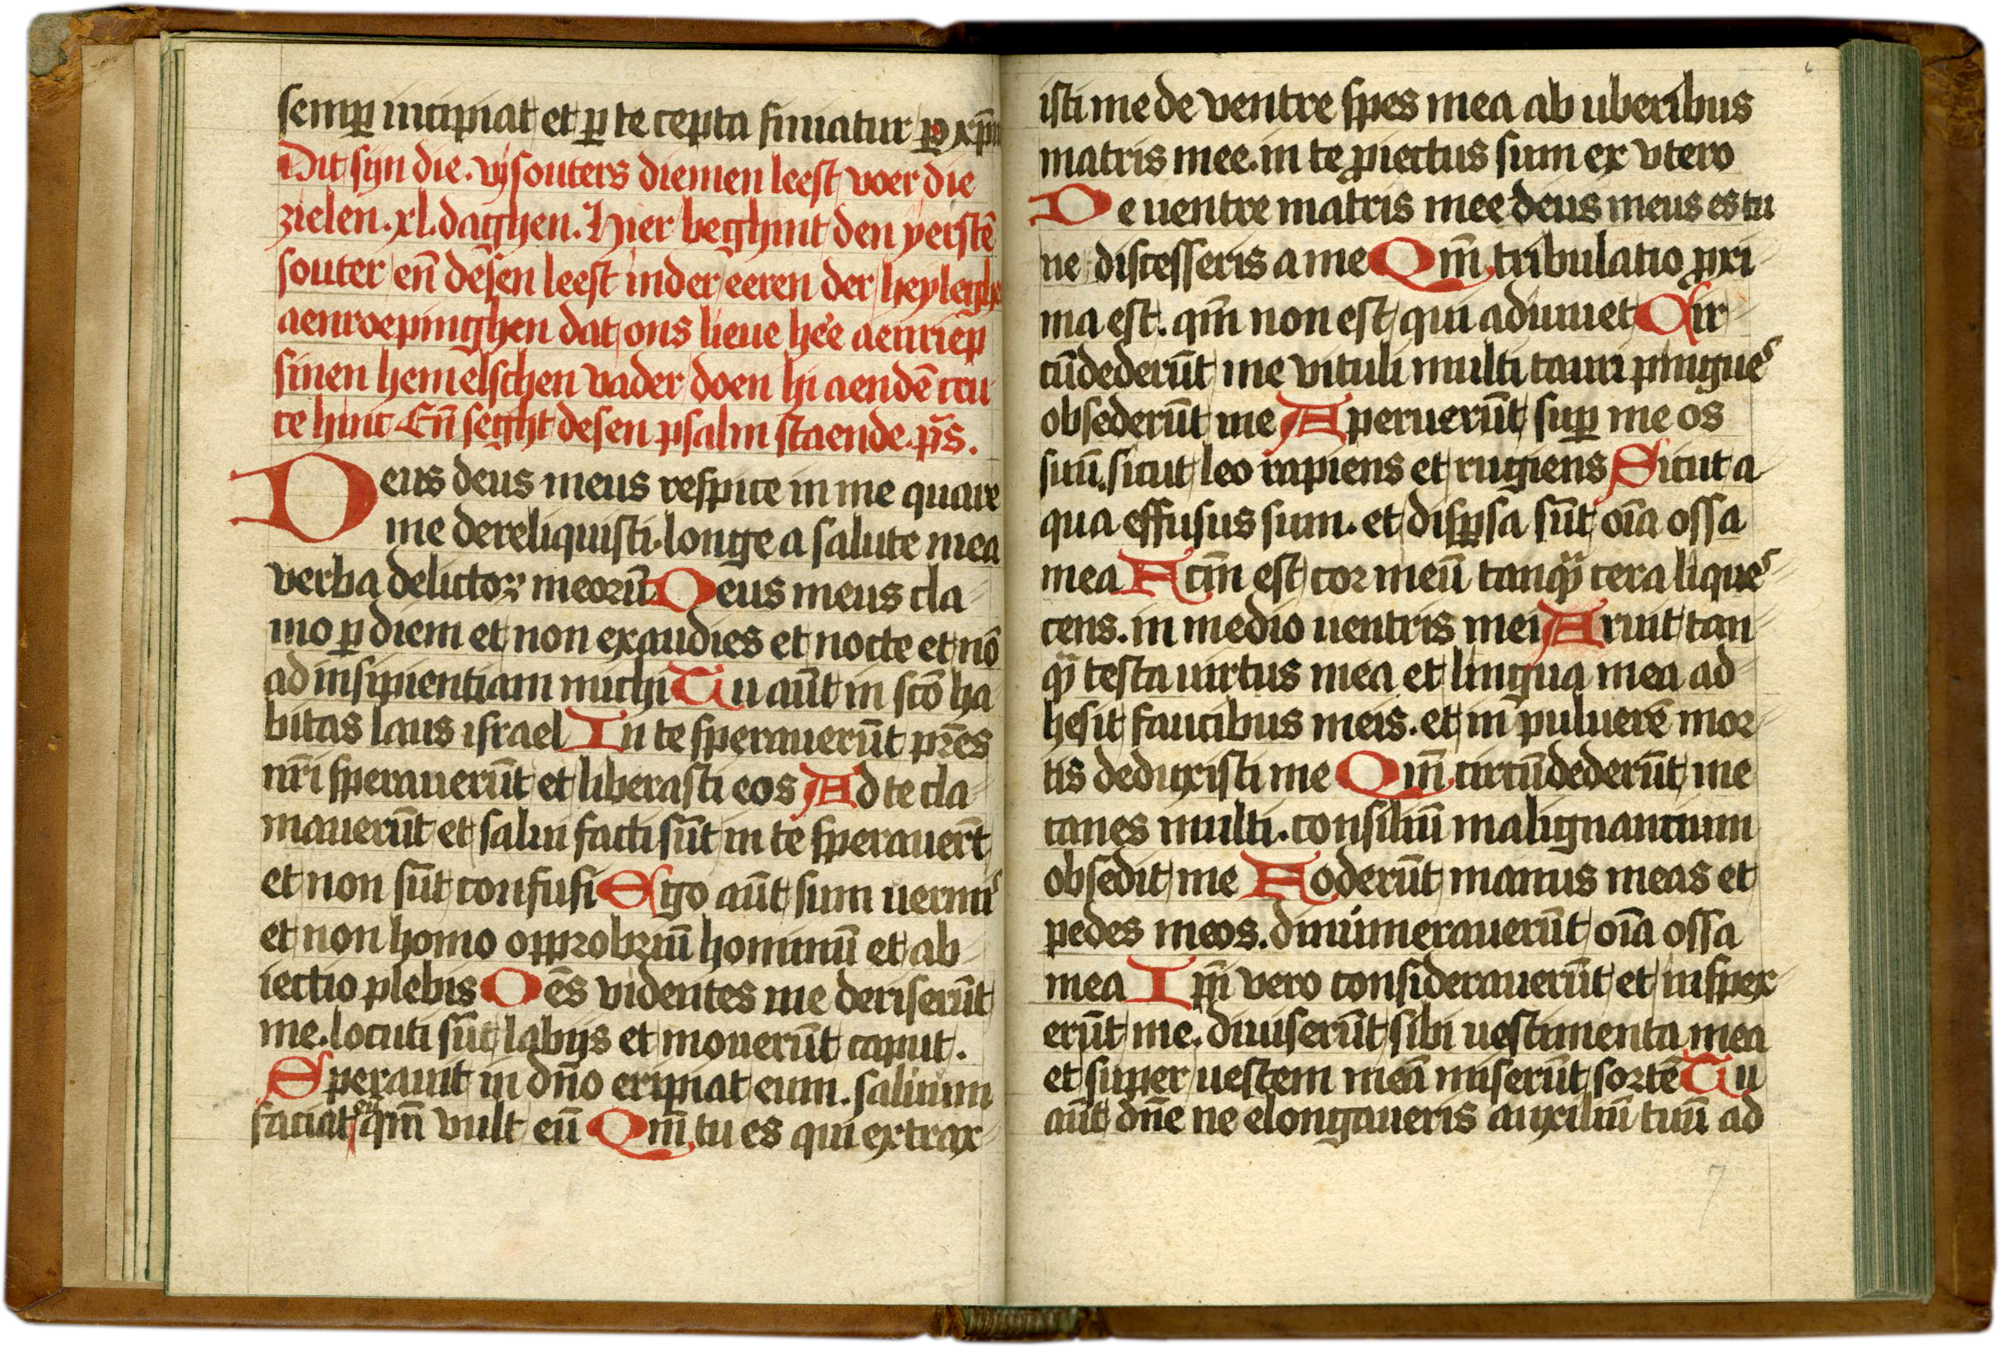 semꝑ incipiat et ꝑ te cepta finiatur ꝑ xp̄m
Dit sijn die .vij souters diemen leest voer die
zielen .xl. daghen. Hier beghint den yerstē
souter en̄ desen leest inder eeren der heyleghe
aenroepinghen dat ons lieue hēe aenriep
sinen hemelschen vader doen hi aendē cru
ce hinc En̄ seght desen psalm staende. p̄s.
Deus deus meus respice in me quare
me dereliquisti. longe a salute mea
verba delictoꝝ meorū Deus meus cla
mo ꝑ diem et non exaudies et nocte et nō
ad insipientiam michi Tu aūt in sc̄o ha
bitas laus israel In te sperauerūt pr̄es
nr̄i sperauerūt et liberasti eos Ad te cla
mauerūt et salui facti sūt in te sperauer̄t
et non sūt confusi Ego aūt sum uermis
et non homo opprobriū hominū et ab
iectio plebis Oēs videntes me deriserūt
me. locuti sūt labijs et mouerūt caput.
Sperauit in dn̄o eripiat eum. saluum
faciat eū qm̄ vult eū Qm̄ tu es qui extrax
6
isti me de ventre spes mea ab uberibus
matris mee. in te ꝓiectus sum ex vtero
De uentre matris mee deus meus es tu
ne discesseris a me Qm̄ tribulatio ꝓxi
ma est. qm̄ non est qui adiuuet Cir
cūdederūt me vituli multi tauri pingues
obsederūt me Aperuerūt suꝑ me os
suū. sicut leo rapiens et rugiens Sicut a
qua effusus sum. et disꝑsa sūt oīa ossa
mea Fcm̄ est cor meū tanqͣ cera lique
cens. in medio uentris mei Aruit tan
qͣ testa uirtus mea et lingua mea ad
hesit faucibus meis. et in puluerē mor
tis deduxisti me Qm̄ circūdederūt me
canes multi. consiliū malignantium
obsedit me Foderūt manus meas et
pedes meos. dinumerauerūt oīa ossa
mea Ipī vero considerauerūt et inspex
erūt me. diuiserūt sibi uestimenta mea
et super uestem meā miserūt sortē Tu
aūt dn̄e ne elongaueris auxiliū tuū ad
7